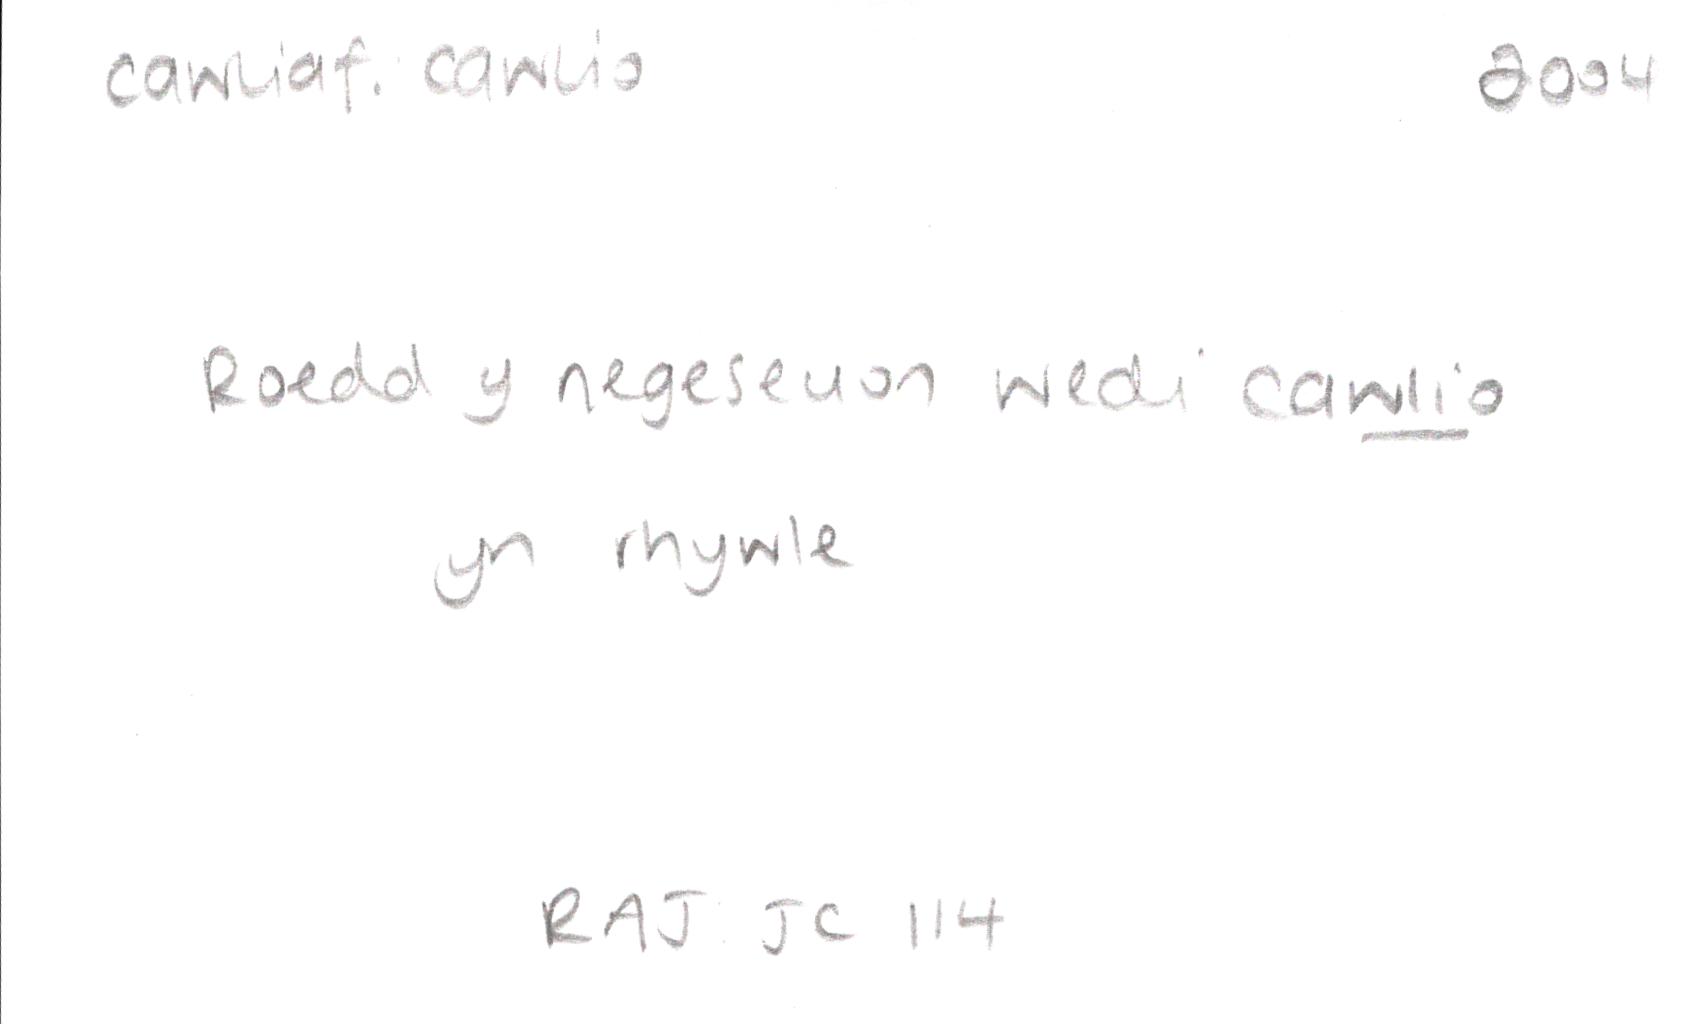 cawliaf: cawlio 2004
Roedd y negeseuon wedi cawlio
yn rhywle
RAJ: JC 114